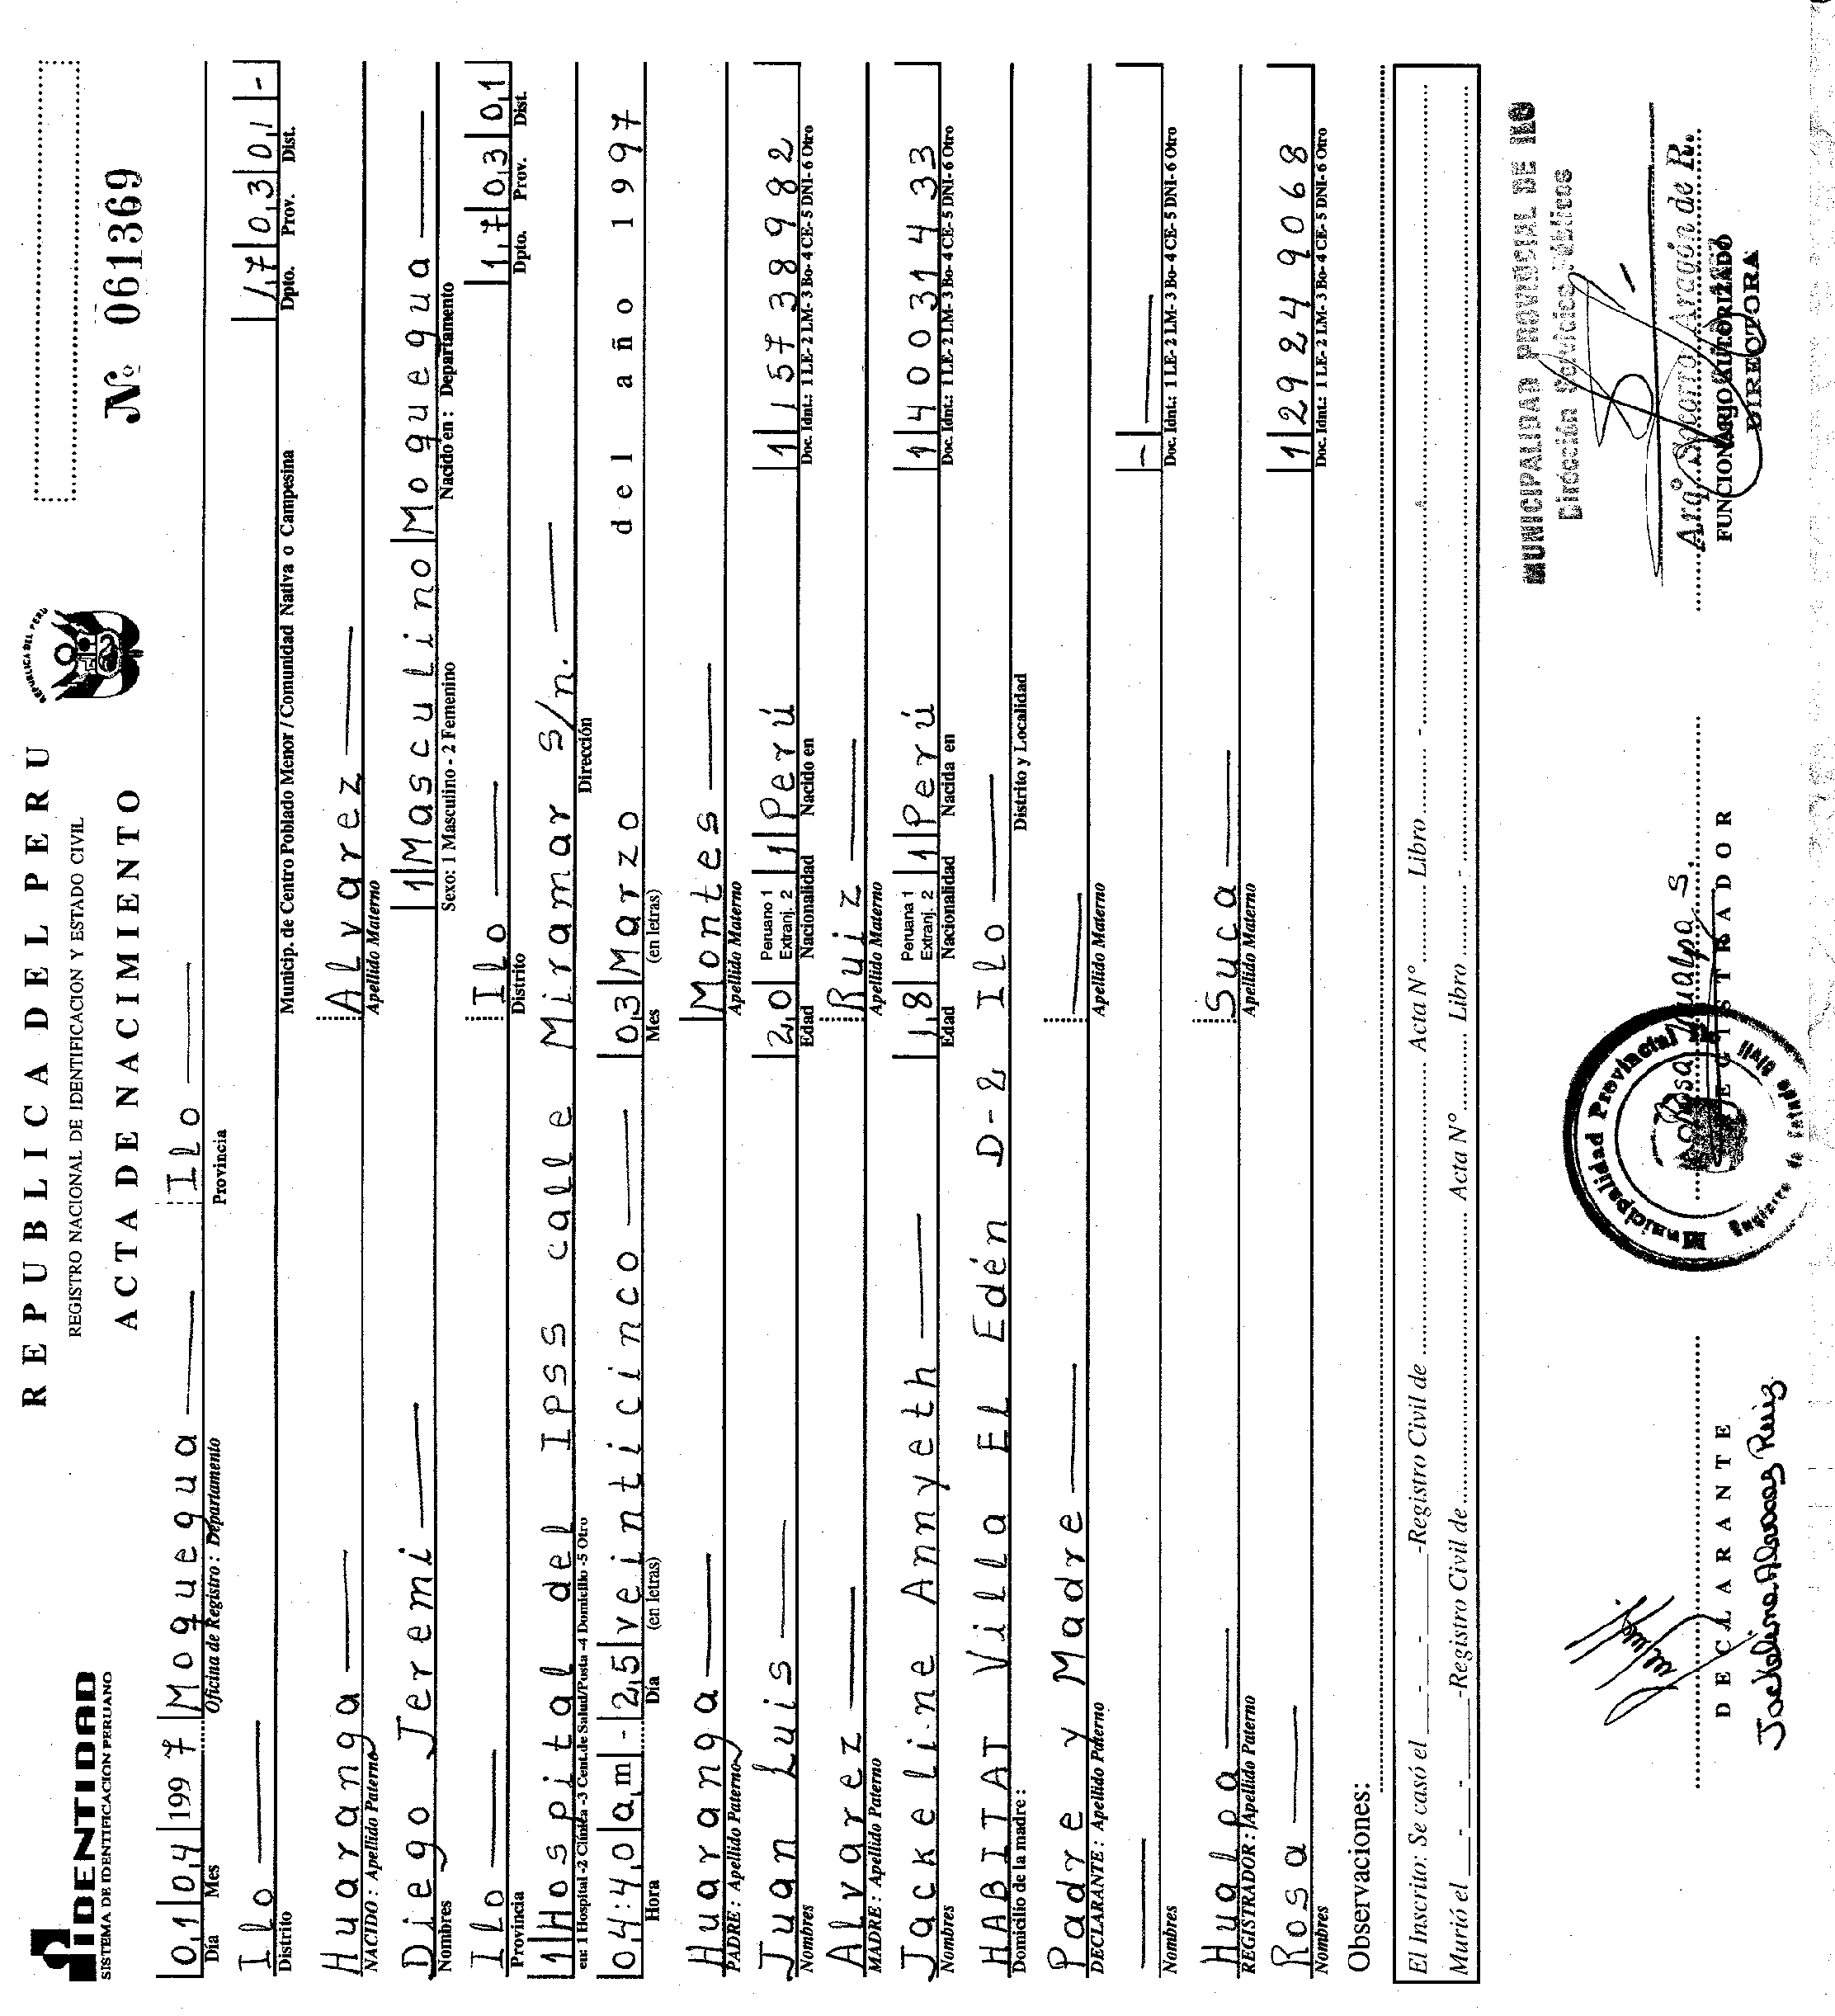 REPUBLICA DEL PERU
REGISTRO NACIONAL DE IDENTIFICACION Y ESTADO CIVIL
ACTA DE NACIMIENTO
IDENTIDAD
SISTEMA DE IDENTIFICACION PERUANO
REPUBLICA DEL PERU
Nº 061369
0,1|0,4|199 7|Moquegua Ilo
Día Mes Oficina de Registro: Departamento Provincia
Ilo 1,7|0,3|0,1|-
Distrito Municip. de Centro Poblado Menor / Comunidad Nativa o Campesina Dpto. Prov. Dist.
Huaranga Alvarez
NACIDO: Apellido Paterno Apellido Materno
Diego Jeremi 1|Masculino|Moquegua
Nombres Sexo: 1 Masculino - 2 Femenino Nacido en: Departamento
Ilo Ilo 1,7|0,3|0,1
Provincia Distrito Dpto. Prov. Dist.
1|Hospital del IPSS calle Miramar s/n.
en: 1 Hospital -2 Clínica -3 Cent.de Salud/Posta -4 Domicilio -5 Otro Dirección
04:40 a,m|-|2,5|veinticinco 0,3|Marzo del año 1997
Hora Día (en letras) Mes (en letras)
Huaranga Montes
PADRE: Apellido Paterno Apellido Materno
Juan Luis 2,0| Peruano 1 Extranj. 2 |1|Perú 1|15738982
Nombres Edad Nacionalidad Nacido en Doc. Idnt.: 1 LE- 2 LM- 3 Bo- 4 CE- 5 DNI- 6 Otro
Alvarez Ruiz
MADRE: Apellido Paterno Apellido Materno
Jackeline Annyeth 1,8| Peruana 1 Extranj. 2 |1|Perú 1|40031433
Nombres Edad Nacionalidad Nacida en Doc. Idnt.: 1 LE- 2 LM- 3 Bo- 4 CE- 5 DNI- 6 Otro
HABITAT Villa El Edén D-2 Ilo
Domicilio de la madre: Distrito y Localidad
Padre y Madre
DECLARANTE: Apellido Paterno Apellido Materno
Nombres Doc. Idnt.: 1 LE- 2 LM- 3 Bo- 4 CE- 5 DNI- 6 Otro
Hualpa Suca
REGISTRADOR: Apellido Paterno Apellido Materno
Rosa 1|29249068
Nombres Doc. Idnt.: 1 LE- 2 LM- 3 Bo- 4 CE- 5 DNI- 6 Otro
Observaciones:
El Inscrito: Se casó el - - -Registro Civil de Acta Nº Libro -
Murió el - - -Registro Civil de Acta Nº Libro -
MUNICIPALIDAD PROVINCIAL DE ILO
Dirección Servicios Públicos
Arqº Socorro Aragón de R.
FUNCIONARIO AUTORIZADO
DIRECTORA
Municipalidad Provincial Ilo
Registro de Estado Civil
Rosa Hualpa S.
REGISTRADOR
DECLARANTE
Jackeline Alvarez Ruiz